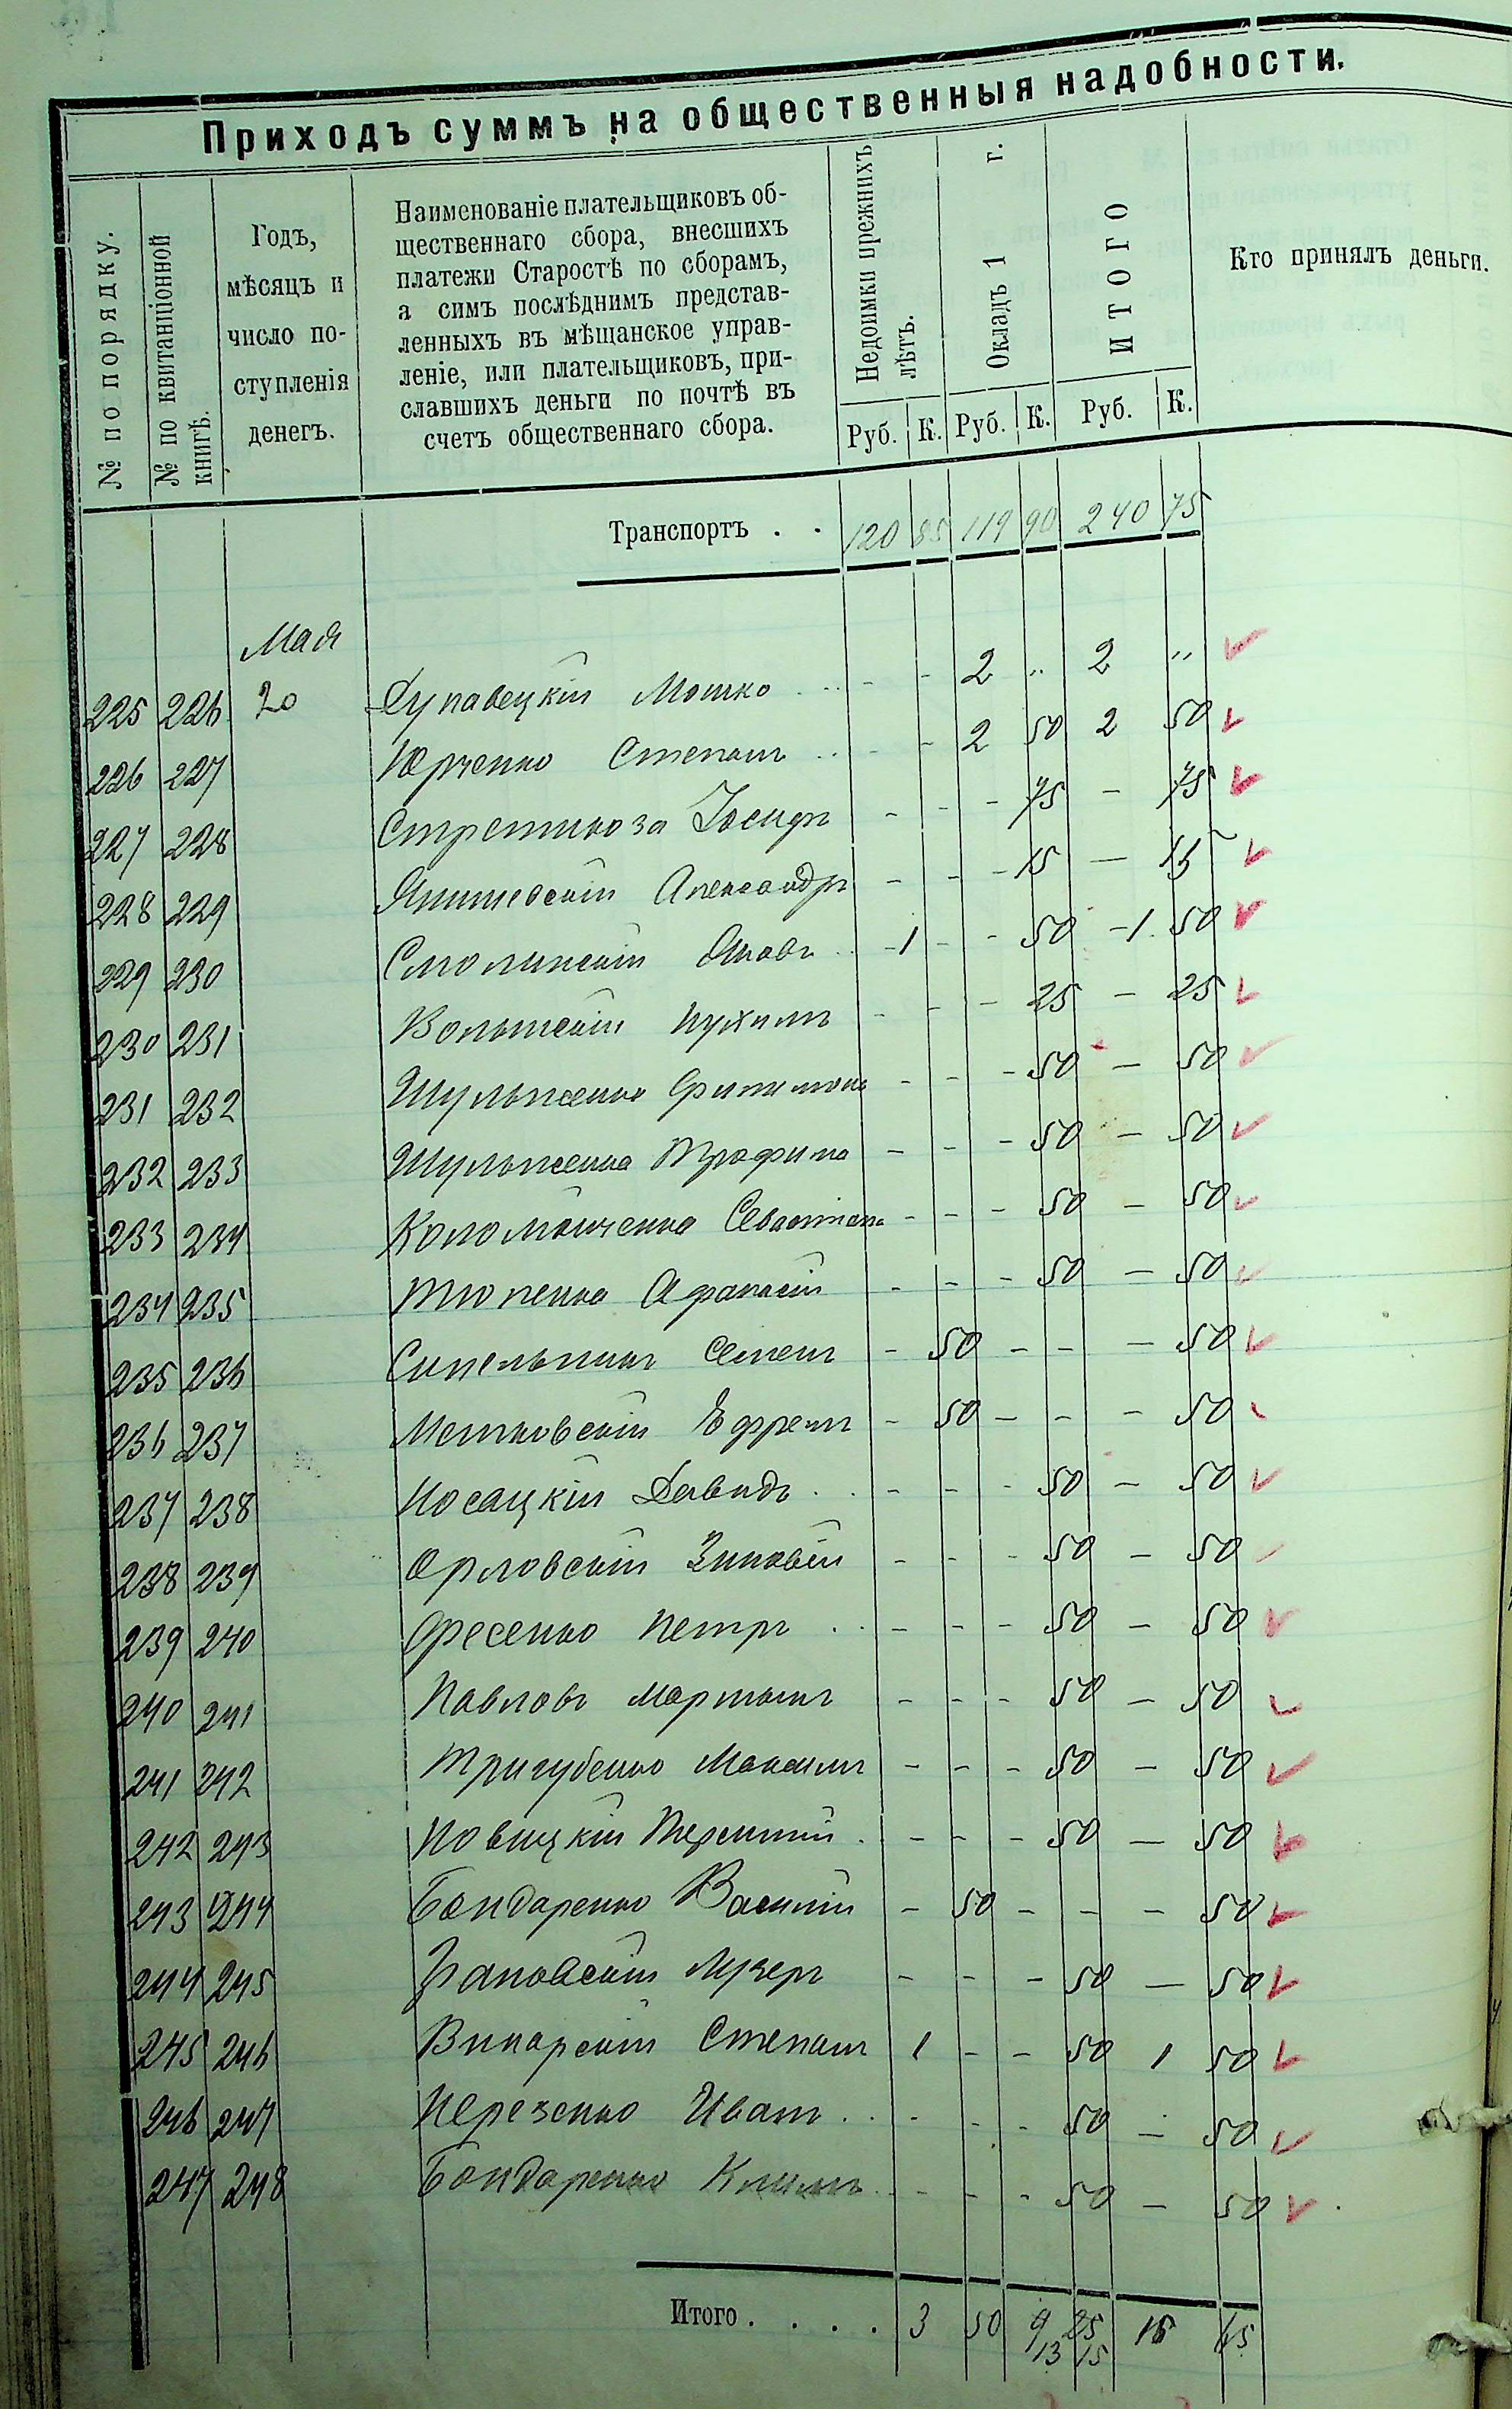 Приходъ суммъ на общественныя надобности.
№ по порядку.
№ по квитанціонной книгѣ.
Годъ,
мѣсяцъ и
число по-
ступленія
денегъ.
Наименованіе плательщиковъ об-
щественнаго сбора, внесшихъ
платежи Старостѣ по сборамъ,
а симъ послѣднимъ представ-
ленныхъ въ мѣщанское управ-
леніе, или плательщиковъ, при-
славшихъ деньги по почтѣ въ
счетъ общественнаго сбора.
Недоимки прежнихъ лѣтъ.
Окладъ 1 г.
ИТОГО
Кто принялъ деньги.
Руб. К. Руб. К. Руб. К.
Транспортъ . . 120 85 119 90 240 75
Мая
225 226 20 Мошко - - 2 " 2 "
226 227 Юрченко Степанъ - - 2 50 2 50
227 228 Іосифъ - - - 75 - 75
228 229 Александръ - - - 15 - 15
229 230 Смолинскій Яковъ - 1 - - 50 - 1 50
230 231 - - - 25 - 25
231 232 Шульженко Филимонъ - - - 50 - 50
232 233 Шульженко Трофимъ - - - 50 - 50
233 234 - - - 50 - 50
234 235 Афанасій - - - 50 - 50
235 236 Семенъ - 50 - - - 50
236 237 Ефремъ - 50 - - - 50
237 238 Носацкій Давидъ . . - - - 50 - 50
238 239 Орловскій Зиновій - - - 50 - 50
239 240 Фесенко Петръ . . - - - 50 - 50
240 241 Павловъ Мартынъ - - - 50 - 50
241 242 Тригубенко Максимъ - - - 50 - 50
242 243 Новицкій Терентій . - - - 50 - 50
243 244 Бондаренко Василій - 50 - - - 50
244 245 - - - 50 - 50
245 246 Винарскій Степанъ 1 - - 50 1 50
246 247 Иванъ . . - - - 50 - 50
247 248 Бондаренко Климъ . - - - 50 - 50
Итого . . . . 3 50 9 25
13 15